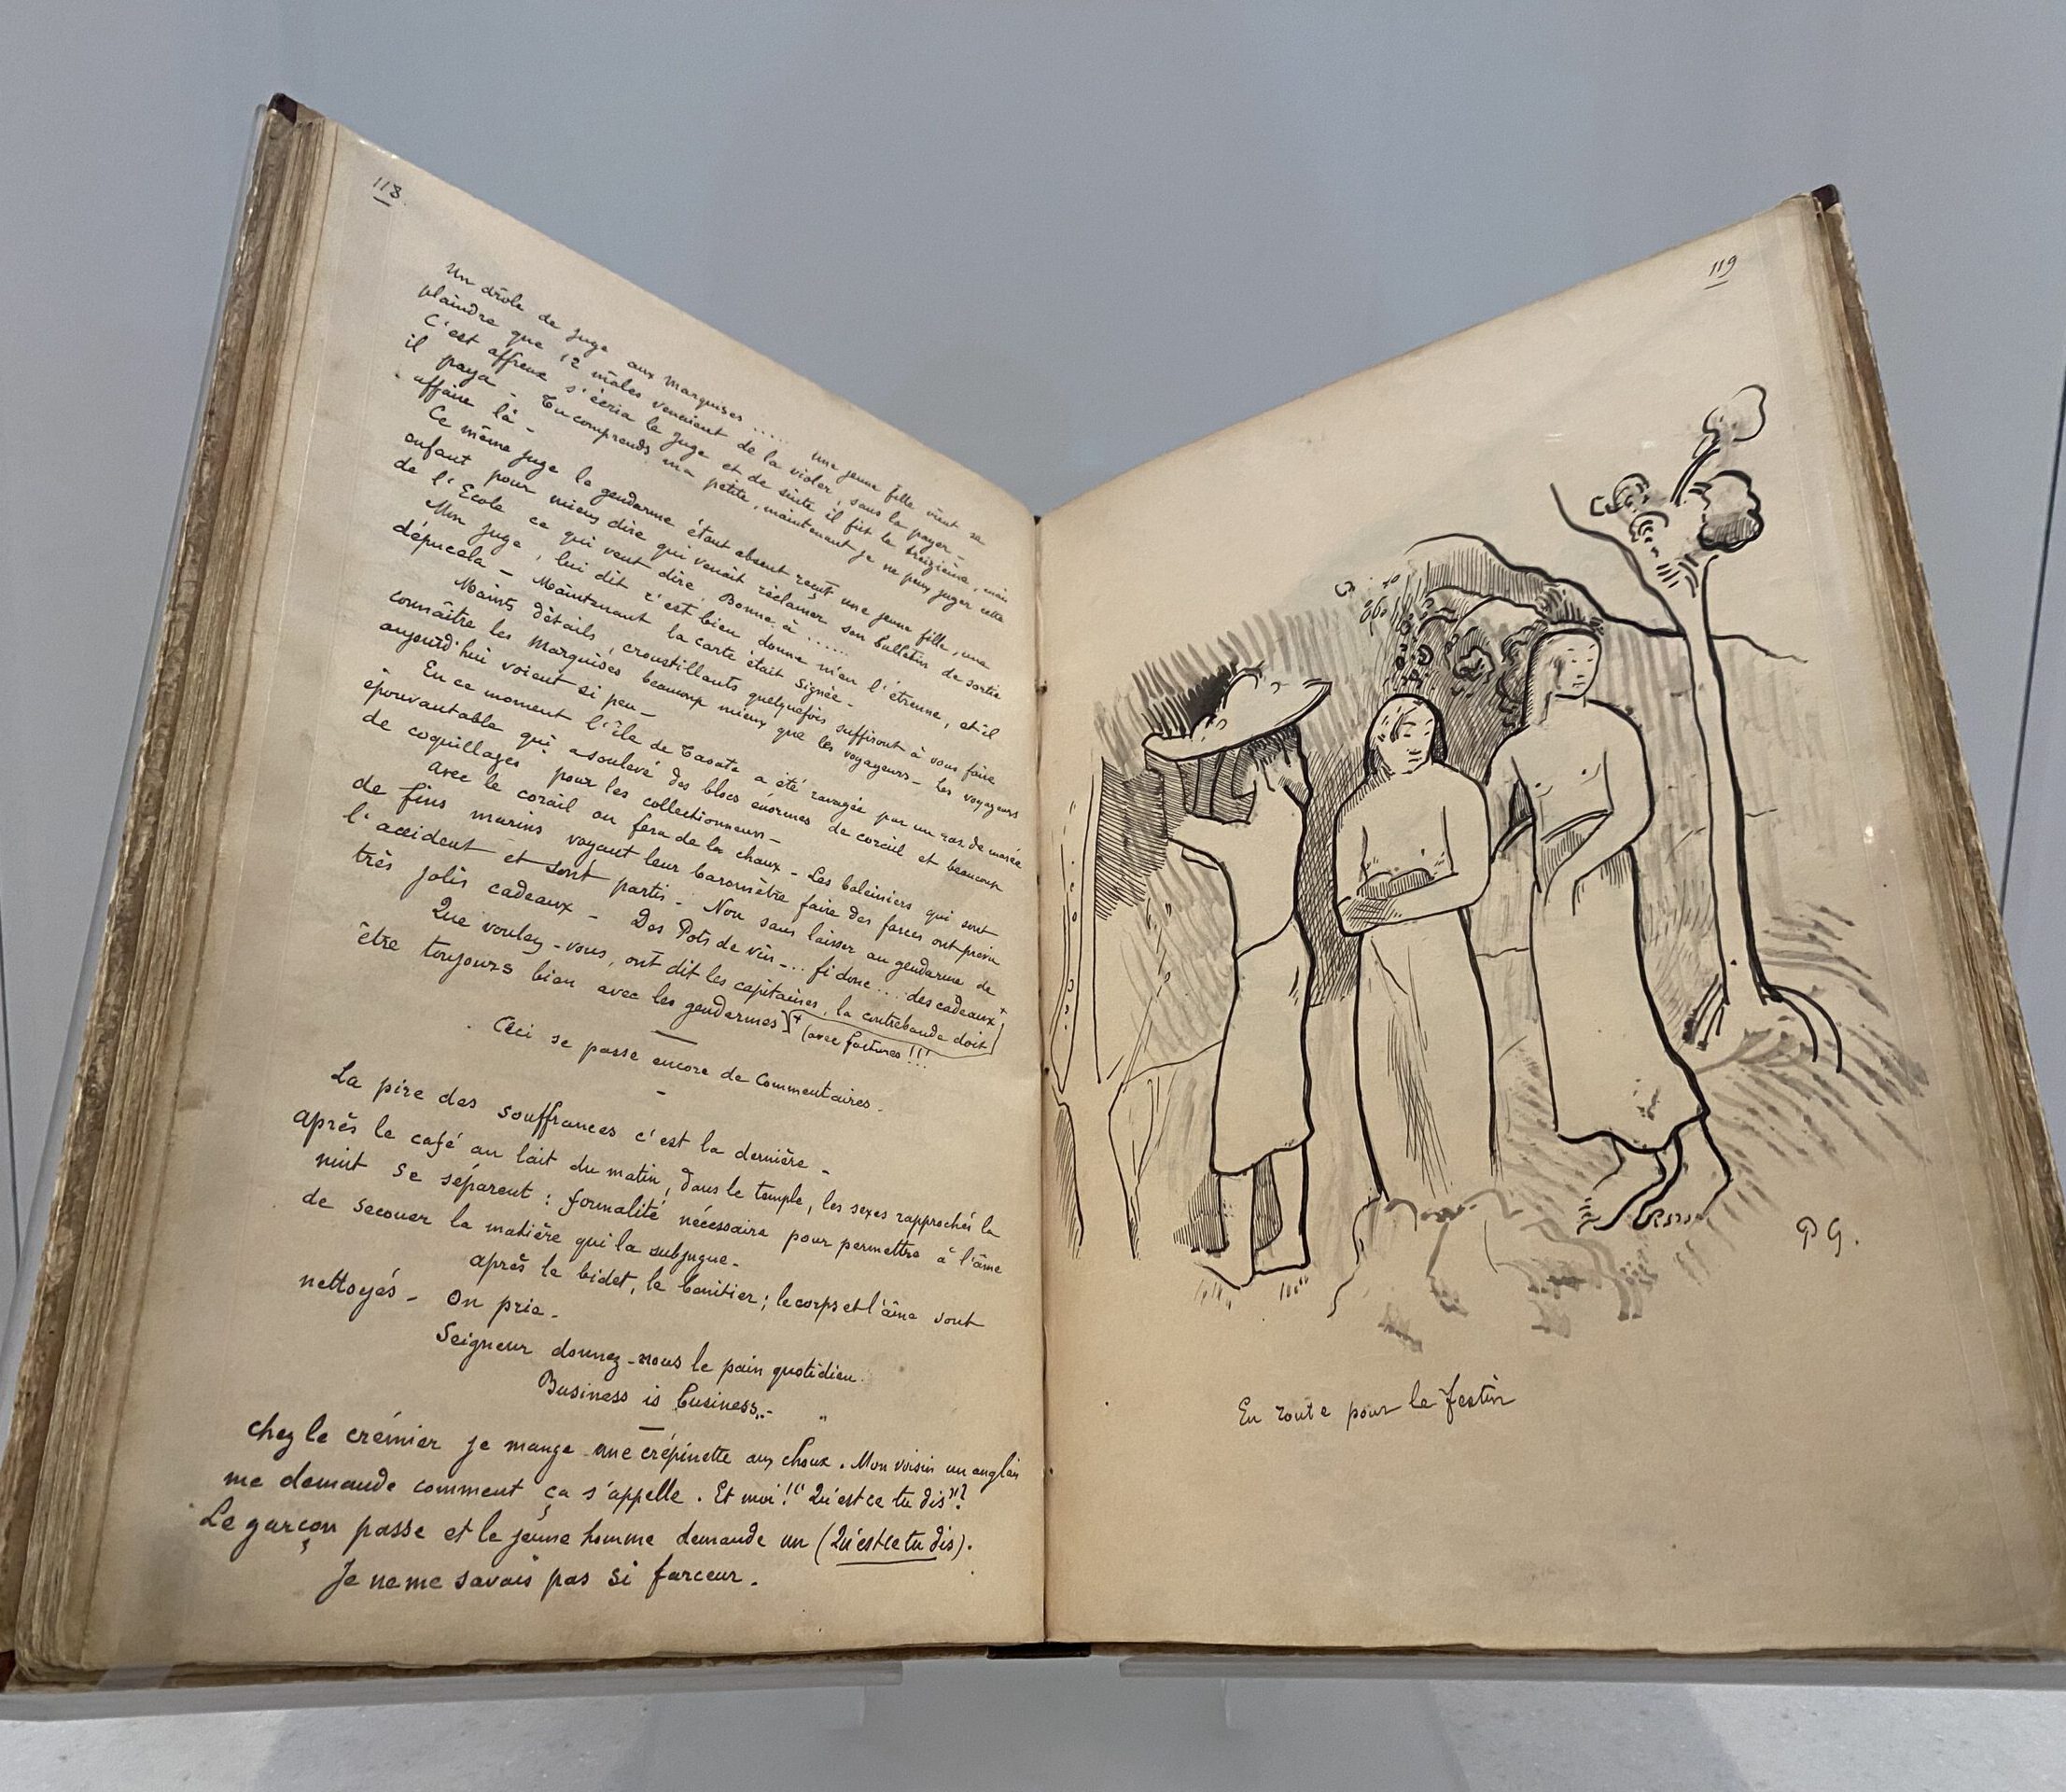 118
Un drôle de juge aux Marquises ..... Une jeune fille vient se
plaindre que 12 mâles venaient de la violer, sans la payer –
C'est affreux s'écria le juge et de suite il fut le treizième, mais
il paya – Tu comprends ma petite, maintenant je ne peux juger cette
affaire là –
Ce même juge le gendarme étant absent reçut une jeune fille, une
enfant pour mieux dire qui venait réclamer son bulletin de sortie
de l'Ecole ce qui veut dire. Bonne à ......
Mon juge, lui dit c'est bien donne m'en l'étrenne, et il
dépucela – Maintenant la carte était signée –
Maints détails, croustillants quelquefois suffiront à vous faire
connaître les Marquises beaucoup mieux que les voyageurs – Les voyageurs
aujourd'hui voient si peu –
En ce moment l'île de Taoata a été ravagée par un raz de marée
épouvantable qui a soulevé des blocs énormes de corail et beaucoup
de coquillages pour les collectionneurs –
Avec le corail on fera de la chaux – Les baleiniers qui sont
de fins marins voyant leur baromètre faire des farces ont prévu
l'accident et sont partis – Non sans laisser au gendarme de
très jolis cadeaux – Des Pots de vin –... fi donc ... des cadeaux +
Que voulez-vous, ont dit les capitaines, la contrebande doit
être toujours bien avec les gendarmes + (avec factures !!!
Ceci se passe encore de Commentaires –
La pire des souffrances c'est la dernière –
Après le café au lait du matin, dans le temple, les sexes rapprochés la
nuit se séparent : formalité nécessaire pour permettre à l'âme
de secouer la matière qui la subjugue –
après le bidet, le bénitier ; le corps et l'âme sont
nettoyés – On prie –
Seigneur donnez-nous le pain quotidien.
Business is business..–
Chez le crémier je mange une crépinette aux choux. Mon voisin un anglais
me demande comment ça s'appelle. Et moi !" Qu'est ce tu dis"?
Le garçon passe et le jeune homme demande un (Qu'est ce tu dis).
Je ne me savais pas si farceur.
119
P G.
En route pour le festin